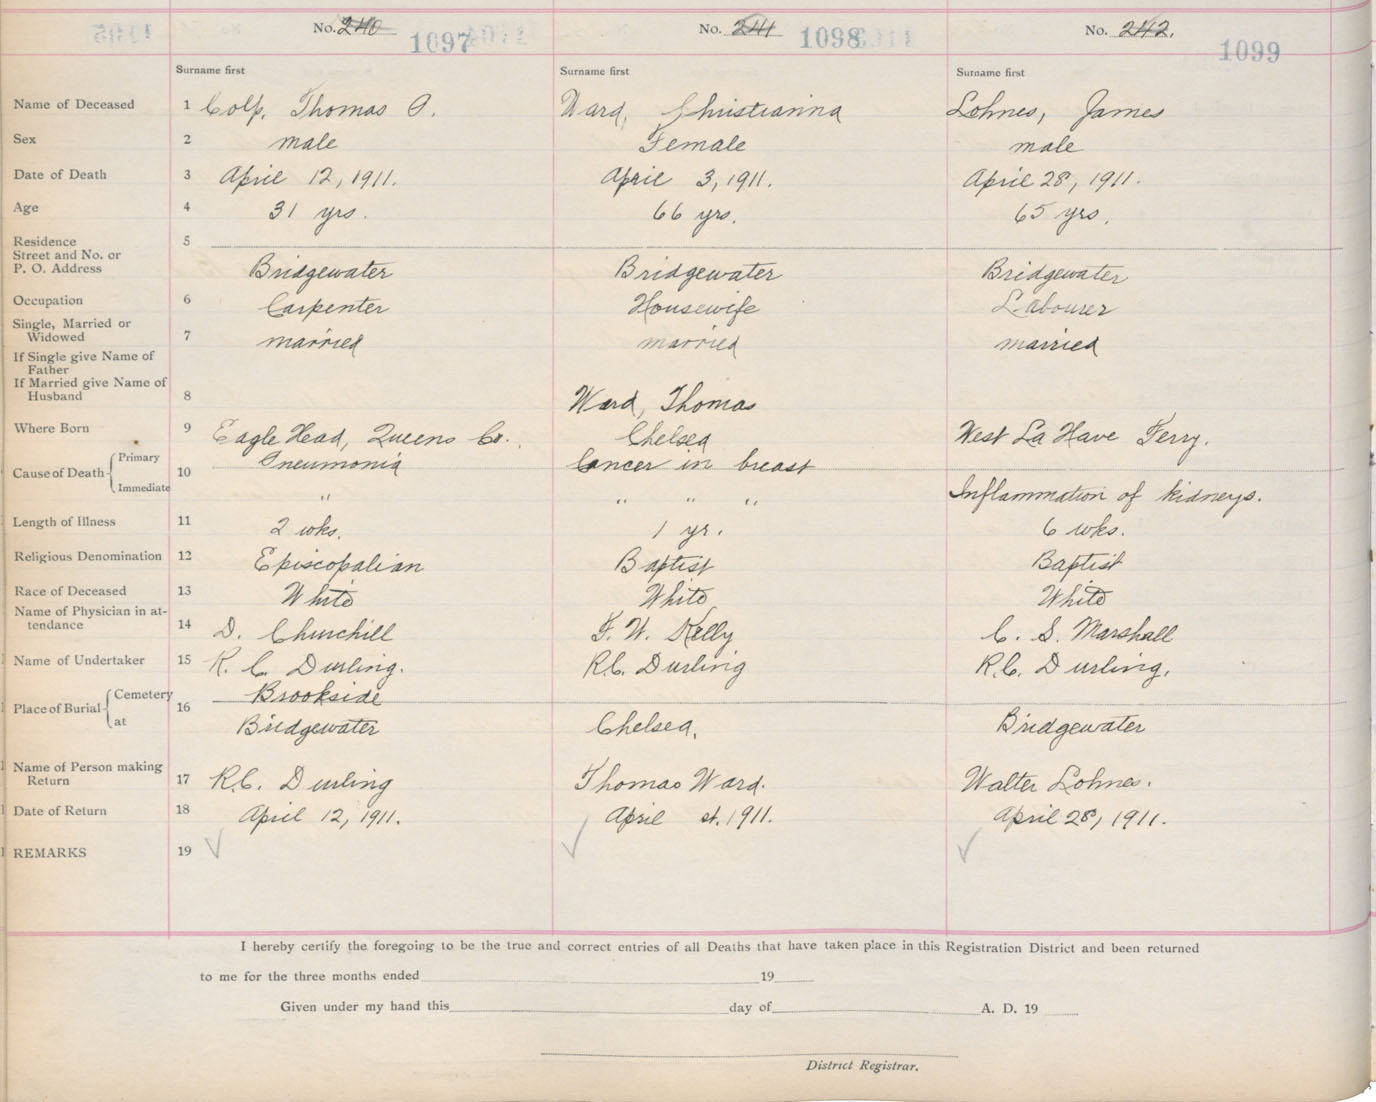 No. 240 1097 No. 241 1098 No. 242. 1099
Surname first Surname first Surname first
Name of Deceased 1 Colp, Thomas O. Ward, Christianna Lohnes, James
Sex 2 male Female male
Date of Death 3 April 12, 1911. April 3, 1911. April 28, 1911.
Age 4 31 yrs. 66 yrs. 65 yrs.
Residence 5
Street and No. or
P. O. Address Bridgewater Bridgewater Bridgewater
Occupation 6 Carpenter Housewife Labourer
Single, Married or
Widowed 7 married married married
If Single give Name of
Father
If Married give Name of
Husband 8 Ward, Thomas
Where Born 9 Eagle Head, Queens Co. Chelsea West La Have Ferry.
Cause of Death Primary 10 Pneumonia Cancer in breast
Immediate " " " " Inflammation of kidneys.
Length of Illness 11 2 wks. 1 yr. 6 wks.
Religious Denomination 12 Episcopalian Baptist Baptist
Race of Deceased 13 White White White
Name of Physician in at-
tendance 14 D. Churchill F. W. Kelly C. S. Marshall
Name of Undertaker 15 R. C. Durling. R.C. Durling R.C. Durling.
Place of Burial Cemetery 16 Brookside
at Bridgewater Chelsea, Bridgewater
Name of Person making
Return 17 R.C. Durling Thomas Ward. Walter Lohnes.
Date of Return 18 April 12, 1911. April 1911. April 28, 1911.
REMARKS 19
I hereby certify the foregoing to be the true and correct entries of all Deaths that have taken place in this Registration District and been returned
to me for the three months ended 19
Given under my hand this day of A. D. 19
District Registrar.